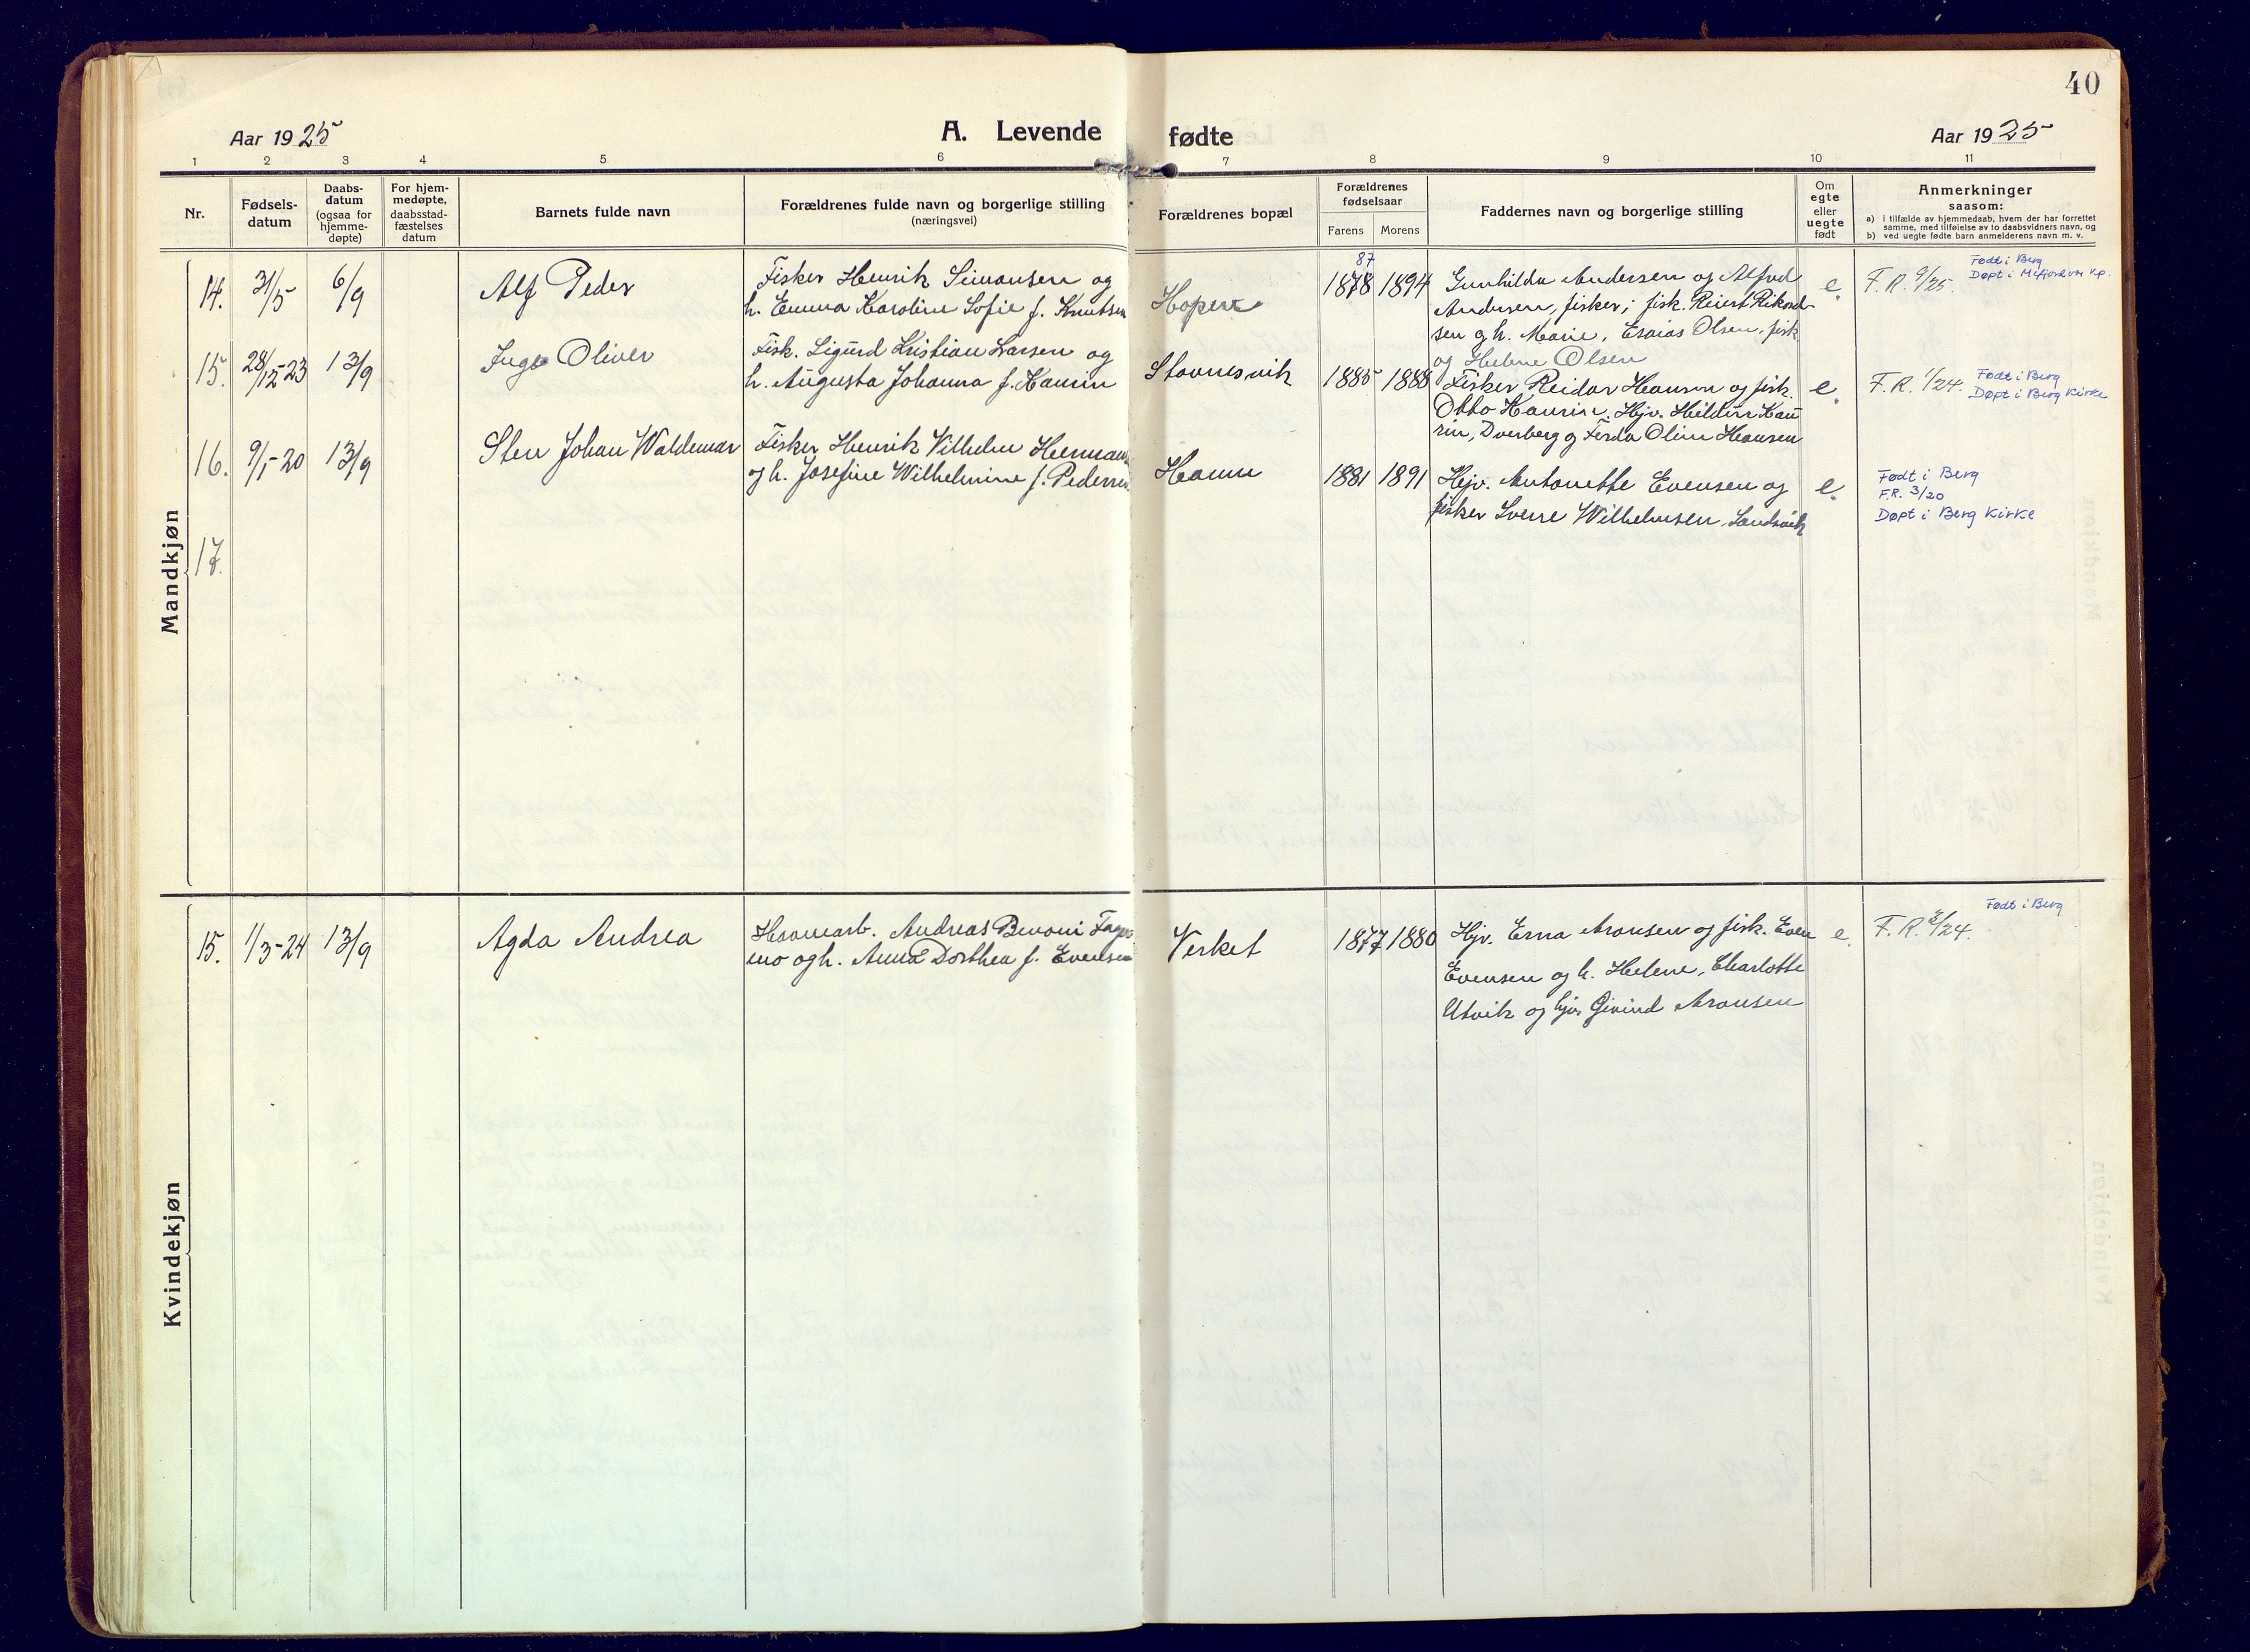 40
Aar 1925
A. Levende fødte
Aar 1925
1 2 3 4 5 6 7 8 9 10 11
Nr.
Fødsels-
datum
Daabs-
datum
(ogsaa for
hjemme-
døpte)
For hjem-
medøpte,
daabsstad-
fæstelses
datum
Barnets fulde navn
Forældrenes fulde navn og borgerlige stilling
(næringsvei)
Forældrenes bopæl
Forældrenes
fødselsaar
Farens Morens
Faddernes navn og borgerlige stilling
Om
egte
eller
uegte
født
Anmerkninger
saasom:
a) i tilfælde av hjemmedaab, hvem der har forrettet
samme, med tilføielse av to daabsvidners navn, og
b) ved uegte fødte barn anmelderens navn m. v.
Mandkjøn
14. 31/5 6/9 Alf Peder
Fisker Henrik Simonsen og
h. Emma Karoline Sofie f. Knutsen
Hopen
87
1878 1894
Gunhilda Andersen og Alfred
Andersen, fisker; fisk. Reiert Rikard
sen og h. Marie, Esaias Olsen, fisk
og Helene Olsen
e.
F.R. 9/25.
Født i Berg
Døpt i Mefjordvær Kp.
15. 28/12-23 13/9 Inge Oliver
Fisk. Sigurd Kristian Larsen og
h. Augusta Johanna f. Kaurin
Stavnesvik
1885 1888
Fisker Reidar Hansen og fisk.
Otto Kaurin. Hjv. Hildur Kau
rin, Dverberg og Ferda Oline Hansen
e.
F.R. 1/24.
Født i Berg
Døpt i Berg Kirke
16. 9/1-20 13/9 Sten Johan Waldemar
Fisker Henrik Vilhelm Hermans
og h. Josefine Wilhelmine f. Pedersen
Hamn
1881 1891
Hjv. Antonette Evensen og
fisker Sverre Wilhelmsen, Sandvik
e.
Født i Berg
F.R. 3/20
Døpt i Berg Kirke
17.
Kvindekjøn
15. 1/3-24 13/9 Agda Andrea
Havnearb. Andreas Benoni Fager
mo og h. Anna Dorthea f. Evensen
Verket
1877 1880
Hjv. Erna Aronsen og fisk. Even
Evensen og h. Helene, Charlotte
Utvik og hjv. Eivind Aronsen
e.
F.R. 3/24.
Født i Berg